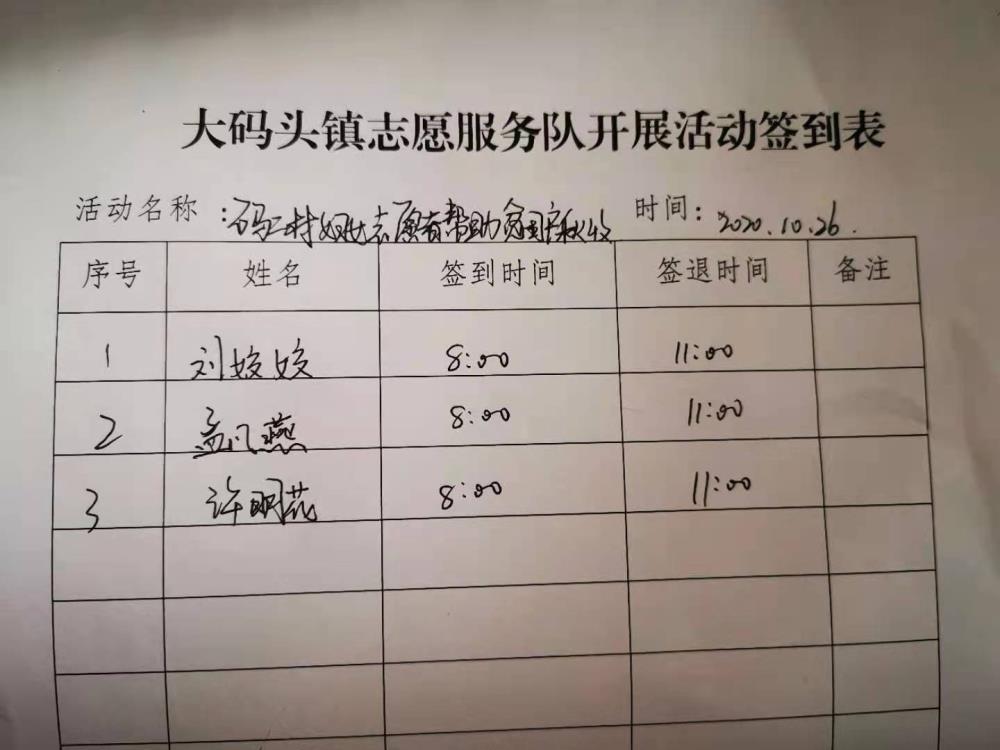 大码头镇志愿服务队开展活动签到表
活动名称:码二村妇女志愿者帮助贫困户秋收 时间:2020.10.26.
序号 姓名 签到时间 签退时间 备注
1 刘姣姣 8:00 11:00
2 孟凡燕 8:00 11:00
3 许明花 8:00 11:00